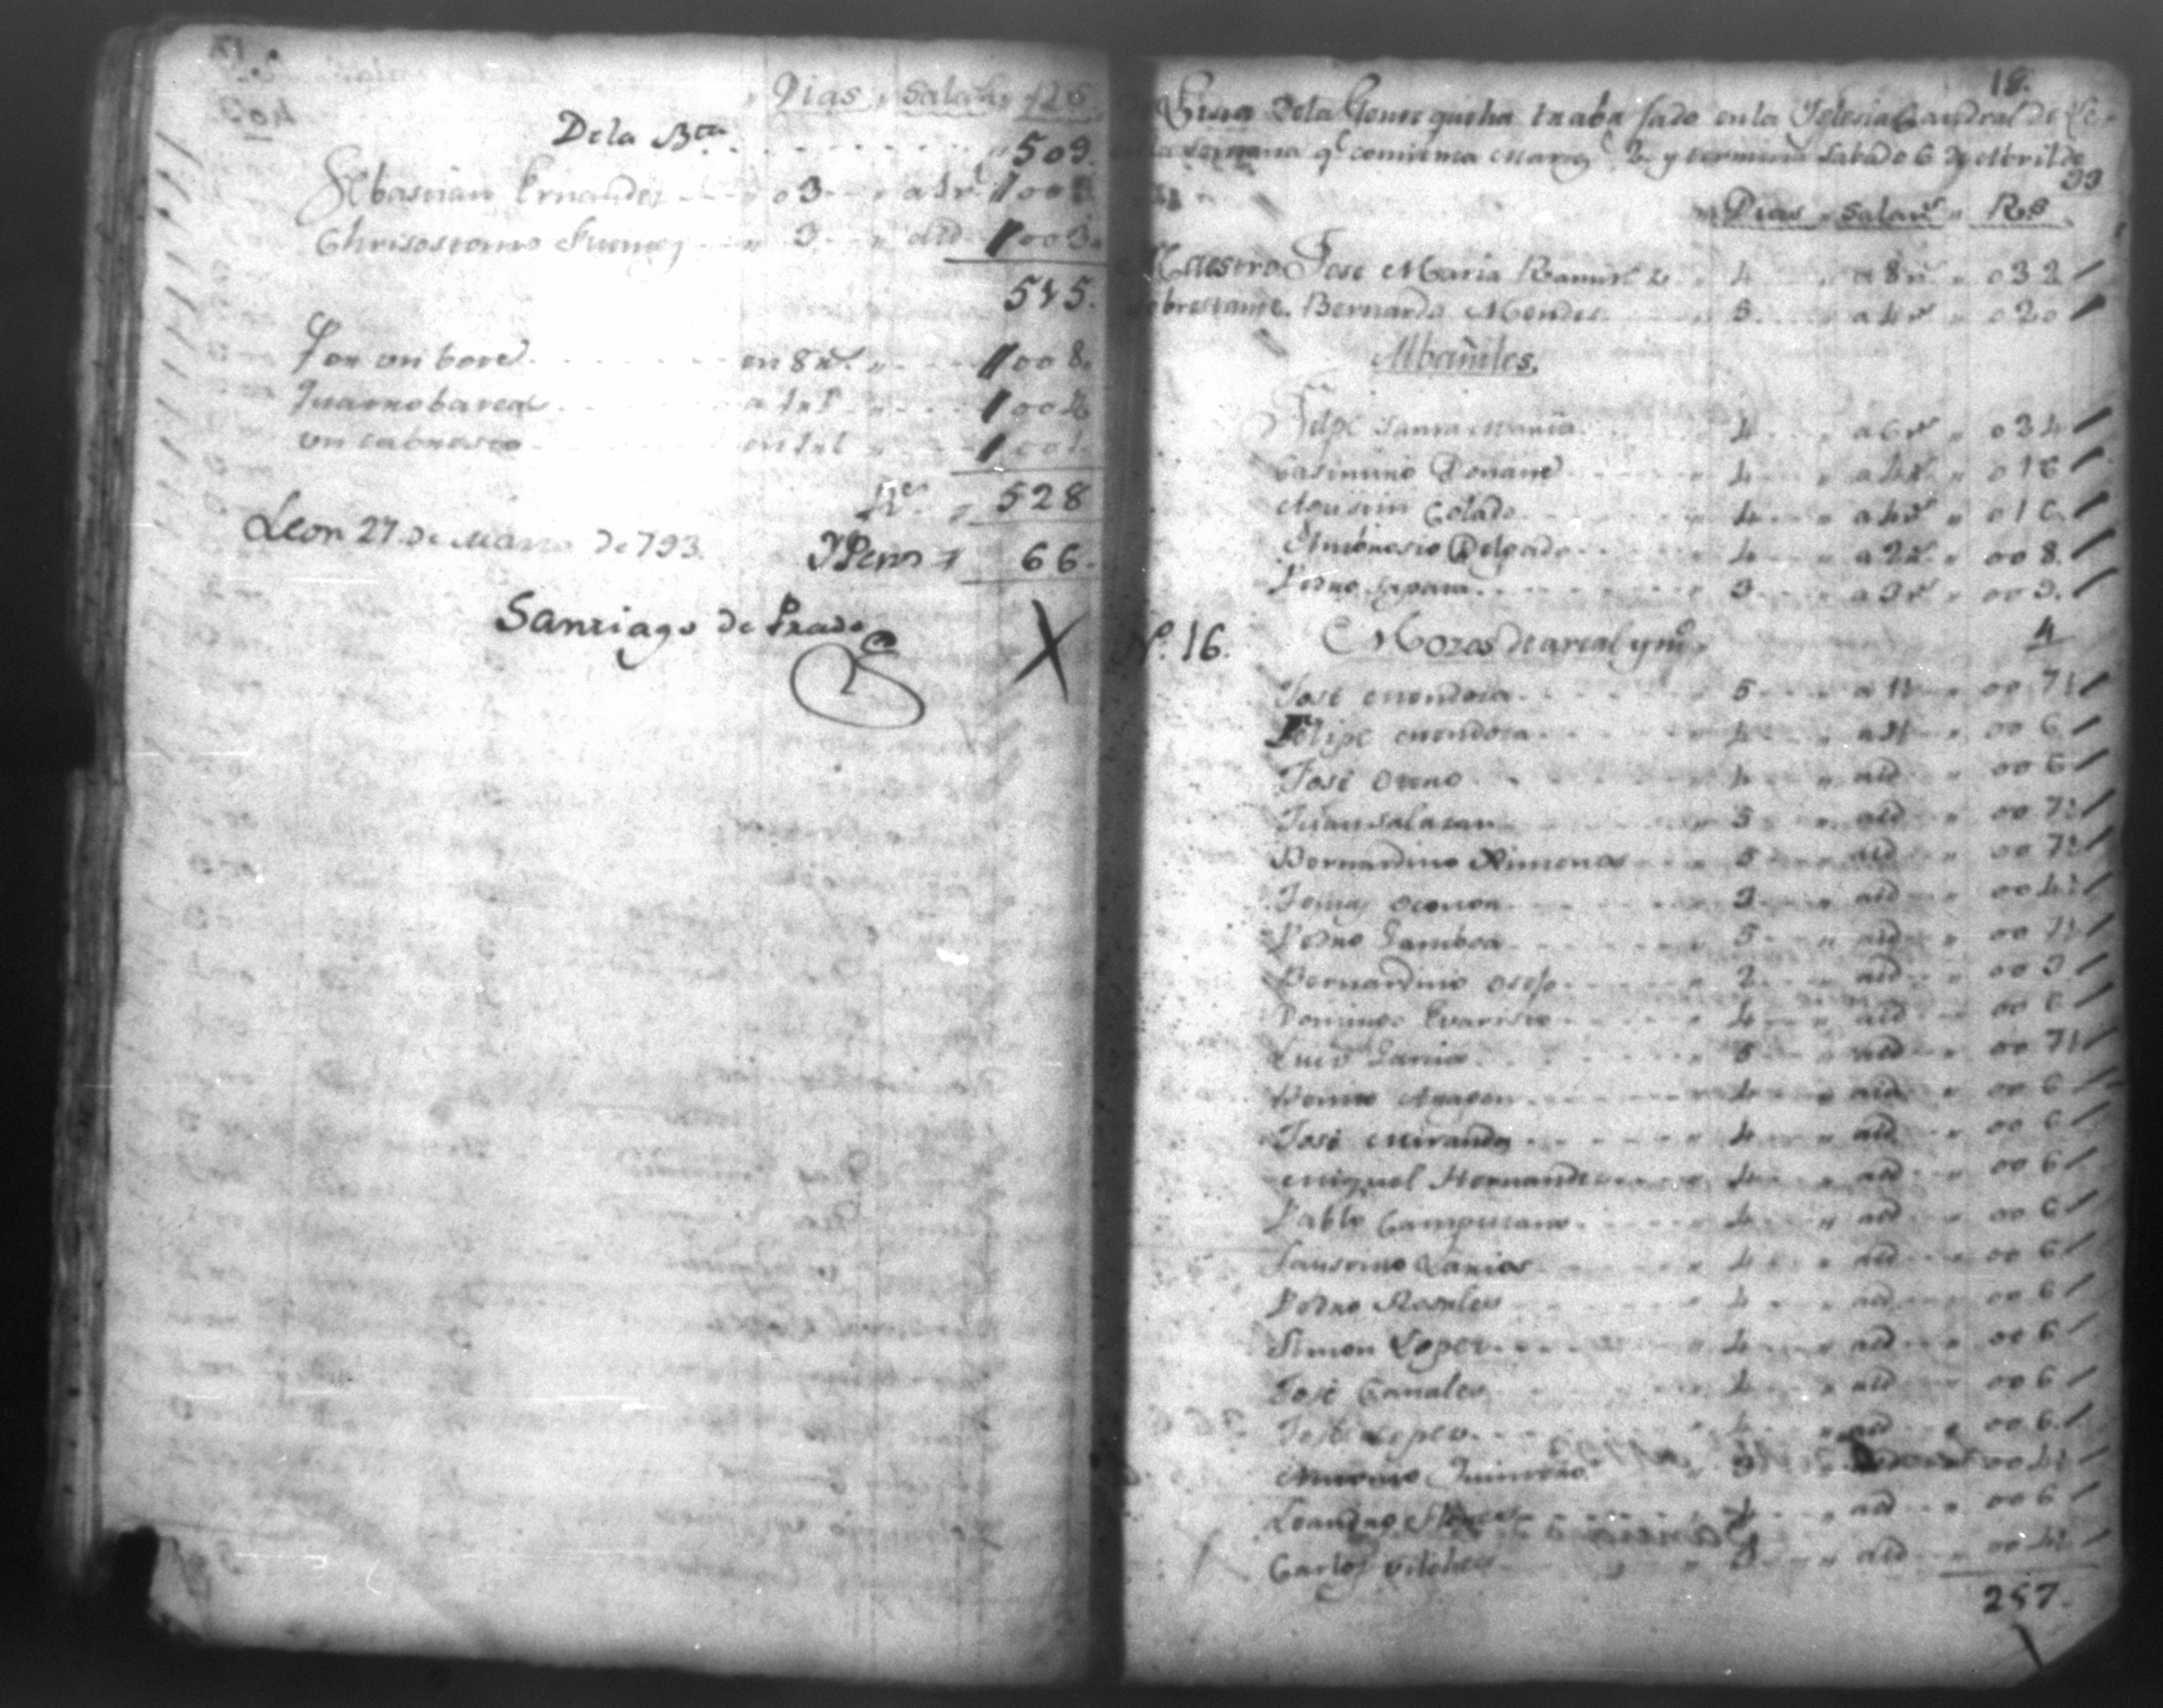 Dias Salars Rs
De la Bta 509.
Sebastian Ernandez 03 a 1 rl 003
Chrisostomo 3 a id 003.
515.
Por un bote en 8 rs. 008.
Quatro bateas a 1 rl 004
un cabresto en 1 rl 001.
Rs 528
Leon 27 de Marzo de 793. Ps 66.
Santiago de Prado
18.
de la Gente que ha trabajado en la Iglesia Catedral de Le-
la semana qe comiensa Martes 2 y termina Sabado 6 de Abril de
93
Dias Salars Rs
Maestro. Jose Maria Ramires 4 a 8 rs 032
Sobrestante. Bernardo Mendes 5 a 4 rs 020
Albañiles.
Felipe Santa Maria 4 a 6 rs 024
Casimiro 4 a 4 rs 016
Agustin Colado 4 a 4 rs 016
Ambrosio Delgado 4 a 2 rs 008.
Pedro 3
No. 16. Mozos de areal y
Jose Mendoza 5 007½
Felipe Mendoza 4 006
Jose 4 a id 006
Juan Salazar 5 a id 007½
Bernardino Ximenes 5 a id 007½
Tomas 3 a id 004½
Pedro Gamboa 5 a id 007½
Bernardino 2 a id 003
Domingo Evaristo 4 a id 006
Luis Garcia 5 a id 007½
4 a id 006
Jose Miranda 4 a id 006
Miguel Hernandes 4 a id 006
Pablo Campusano 4 a id 006
Faustino Larios 4 a id 006
Pedro Rosales 4 a id 006
Simon Lopes 4 a id 006
Jose Canales 4 a id 006
Jose Lopes 4 a id 006.
Antonio 3 004½
Leandro 4 a id 006
Carlos Vilches 3 a id 004½
257.